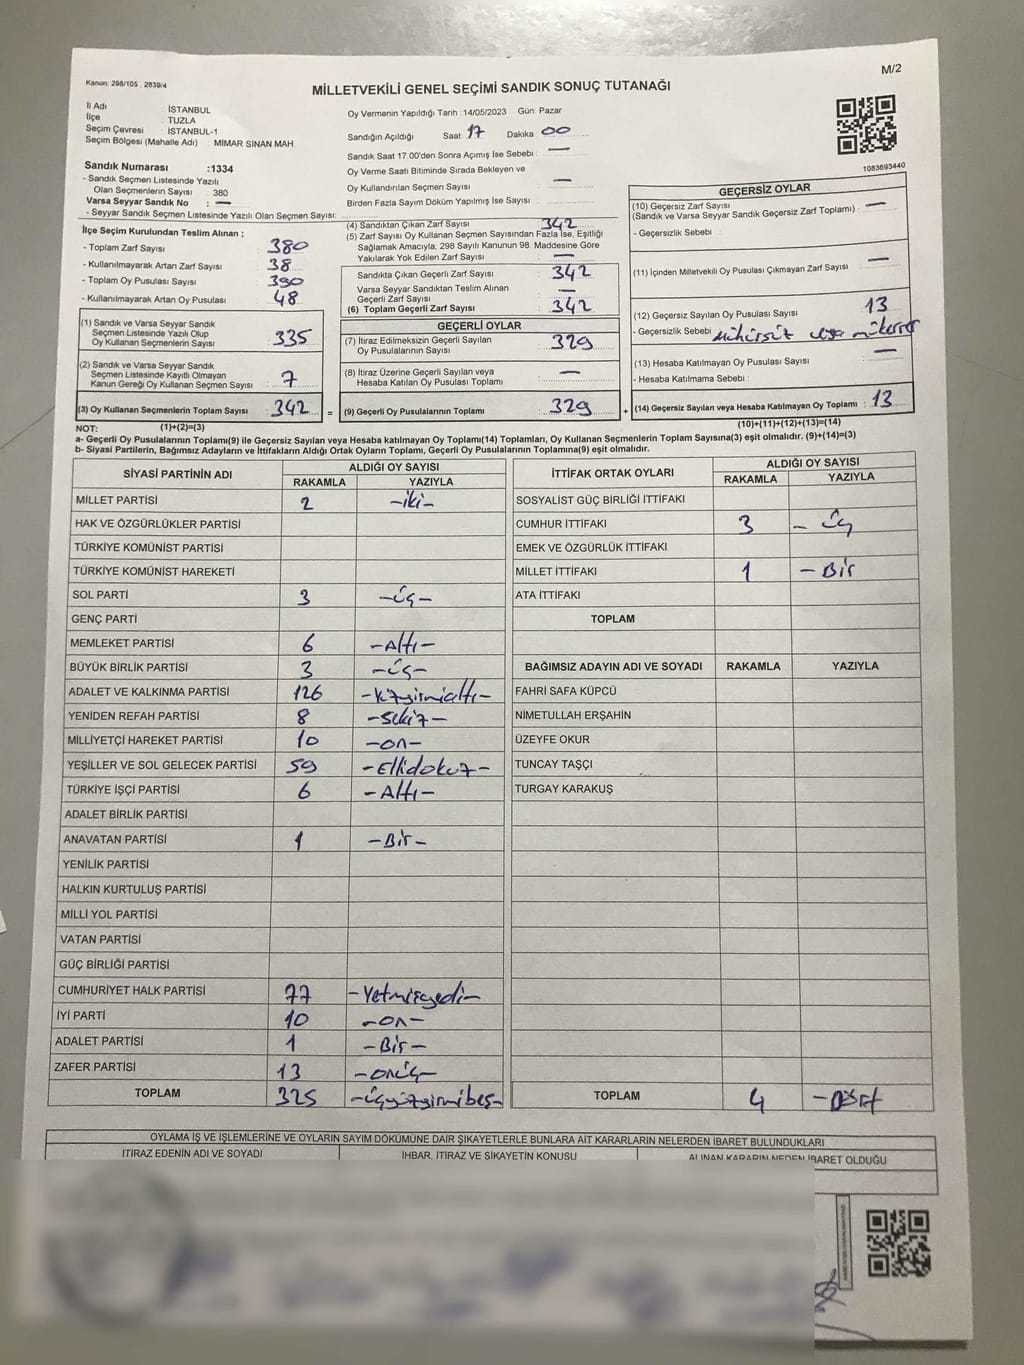 M/2
Kanun: 298/105 , 2839/4
MİLLETVEKİLİ GENEL SEÇİMİ SANDIK SONUÇ TUTANAĞI
İli Adı : İSTANBUL
İlçe TUZLA
Seçim Çevresi İSTANBUL-1
Seçim Bölgesi (Mahalle Adı) : MİMAR SİNAN MAH
Sandık Numarası :1334
- Sandık Seçmen Listesinde Yazılı
Olan Seçmenlerin Sayısı : 380
Varsa Seyyar Sandık No : —
- Seyyar Sandık Seçmen Listesinde Yazılı Olan Seçmen Sayısı:
Oy Vermenin Yapıldığı Tarih :14/05/2023 Gün: Pazar
Sandığın Açıldığı Saat 17 Dakika 00
Sandık Saat 17.00'den Sonra Açımış İse Sebebi : —
Oy Verme Saati Bitiminde Sırada Bekleyen ve
Oy Kullandırılan Seçmen Sayısı : —
Birden Fazla Sayım Döküm Yapılmış İse Sayısı :
1083693440
İlçe Seçim Kurulundan Teslim Alınan ;
- Toplam Zarf Sayısı : 380
- Kullanılmayarak Artan Zarf Sayısı : 38
- Toplam Oy Pusulası Sayısı : 390
- Kullanılmayarak Artan Oy Pusulası : 48
(1) Sandık ve Varsa Seyyar Sandık
Seçmen Listesinde Yazılı Olup
Oy Kullanan Seçmenlerin Sayısı : 335
(2) Sandık ve Varsa Seyyar Sandık
Seçmen Listesinde Kayıtlı Olmayan
Kanun Gereği Oy Kullanan Seçmen Sayısı : 7
(3) Oy Kullanan Seçmenlerin Toplam Sayısı : 342 =
(4) Sandıktan Çıkan Zarf Sayısı : 342
(5) Zarf Sayısı Oy Kullanan Seçmen Sayısından Fazla İse, Eşitliği
Sağlamak Amacıyla, 298 Sayılı Kanunun 98. Maddesine Göre
Yakılarak Yok Edilen Zarf Sayısı : —
Sandıkta Çıkan Geçerli Zarf Sayısı : 342
Varsa Seyyar Sandıktan Teslim Alınan
Geçerli Zarf Sayısı : —
(6) Toplam Geçerli Zarf Sayısı : 342
GEÇERLİ OYLAR
(7) İtiraz Edilmeksizin Geçerli Sayılan
Oy Pusulalarının Sayısı : 329
(8) İtiraz Üzerine Geçerli Sayılan veya
Hesaba Katılan Oy Pusulası Toplamı : —
(9) Geçerli Oy Pusulalarının Toplamı : 329 +
GEÇERSİZ OYLAR
(10) Geçersiz Zarf Sayısı
(Sandık ve Varsa Seyyar Sandık Geçersiz Zarf Toplamı) : —
- Geçersizlik Sebebi :
(11) İçinden Milletvekili Oy Pusulası Çıkmayan Zarf Sayısı : —
(12) Geçersiz Sayılan Oy Pusulası Sayısı : 13
- Geçersizlik Sebebi : mühürsüz veya mükerrer
(13) Hesaba Katılmayan Oy Pusulası Sayısı : —
- Hesaba Katılmama Sebebi :
(14) Geçersiz Sayılan veya Hesaba Katılmayan Oy Toplamı : 13
NOT: (1)+(2)=(3) (10)+(11)+(12)+(13)=(14)
a- Geçerli Oy Pusulalarının Toplamı(9) ile Geçersiz Sayılan veya Hesaba katılmayan Oy Toplamı(14) Toplamları, Oy Kullanan Seçmenlerin Toplam Sayısına(3) eşit olmalıdır. (9)+(14)=(3)
b- Siyasi Partilerin, Bağımsız Adayların ve İttifakların Aldığı Ortak Oyların Toplamı, Geçerli Oy Pusulalarının Toplamına(9) eşit olmalıdır.
SİYASİ PARTİNİN ADI ALDIĞI OY SAYISI
RAKAMLA YAZIYLA
MİLLET PARTİSİ 2 -iki-
HAK VE ÖZGÜRLÜKLER PARTİSİ
TÜRKİYE KOMÜNİST PARTİSİ
TÜRKİYE KOMÜNİST HAREKETİ
SOL PARTİ 3 -üç-
GENÇ PARTİ
MEMLEKET PARTİSİ 6 -Altı-
BÜYÜK BİRLİK PARTİSİ 3 -üç-
ADALET VE KALKINMA PARTİSİ 126
YENİDEN REFAH PARTİSİ 8 -sekiz-
MİLLİYETÇİ HAREKET PARTİSİ 10 -on-
YEŞİLLER VE SOL GELECEK PARTİSİ 59 -Ellidokuz-
TÜRKİYE İŞÇİ PARTİSİ 6 -Altı-
ADALET BİRLİK PARTİSİ
ANAVATAN PARTİSİ 1 -Bir-
YENİLİK PARTİSİ
HALKIN KURTULUŞ PARTİSİ
MİLLİ YOL PARTİSİ
VATAN PARTİSİ
GÜÇ BİRLİĞİ PARTİSİ
CUMHURİYET HALK PARTİSİ 77 -Yetmişyedi-
İYİ PARTİ 10 -on-
ADALET PARTİSİ 1 -Bir-
ZAFER PARTİSİ 13 -onüç-
TOPLAM 325 -üçyüzyirmibeş-
İTTİFAK ORTAK OYLARI ALDIĞI OY SAYISI
RAKAMLA YAZIYLA
SOSYALİST GÜÇ BİRLİĞİ İTTİFAKI
CUMHUR İTTİFAKI 3 - üç
EMEK VE ÖZGÜRLÜK İTTİFAKI
MİLLET İTTİFAKI 1 - Bir
ATA İTTİFAKI
TOPLAM
BAĞIMSIZ ADAYIN ADI VE SOYADI RAKAMLA YAZIYLA
FAHRİ SAFA KÜPCÜ
NİMETULLAH ERŞAHİN
ÜZEYFE OKUR
TUNCAY TAŞÇI
TURGAY KARAKUŞ
TOPLAM 4 - Dört
OYLAMA İŞ VE İŞLEMLERİNE VE OYLARIN SAYIM DÖKÜMÜNE DAİR ŞİKAYETLERLE BUNLARA AİT KARARLARIN NELERDEN İBARET BULUNDUKLARI
İTİRAZ EDENİN ADI VE SOYADI İHBAR, İTİRAZ VE ŞİKAYETİN KONUSU ALINAN KARARIN NEDEN İBARET OLDUĞU